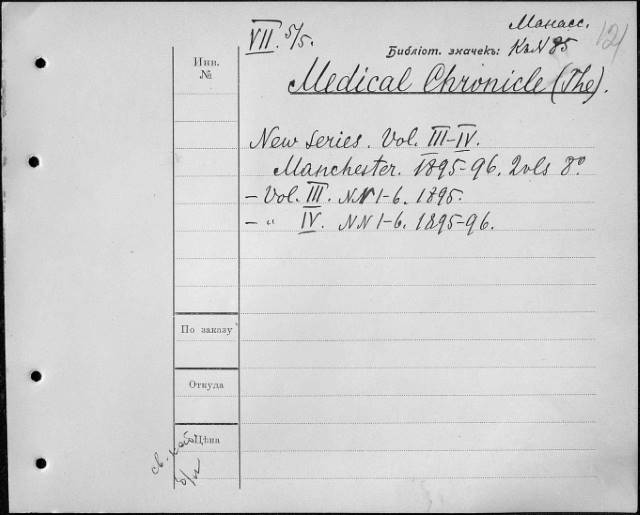 VII. 5/5.
Манасс.
121
Библіот. значекъ: КнN85
Инв.
№
Medical Chronicle (The).
New series. Vol. III-IV.
Manchester. 1895-96. 2 vls 8°
- Vol. III. NN 1-6. 1895.
- " IV. NN 1-6. 1895-96.
По заказу
Откуда
Цѣна